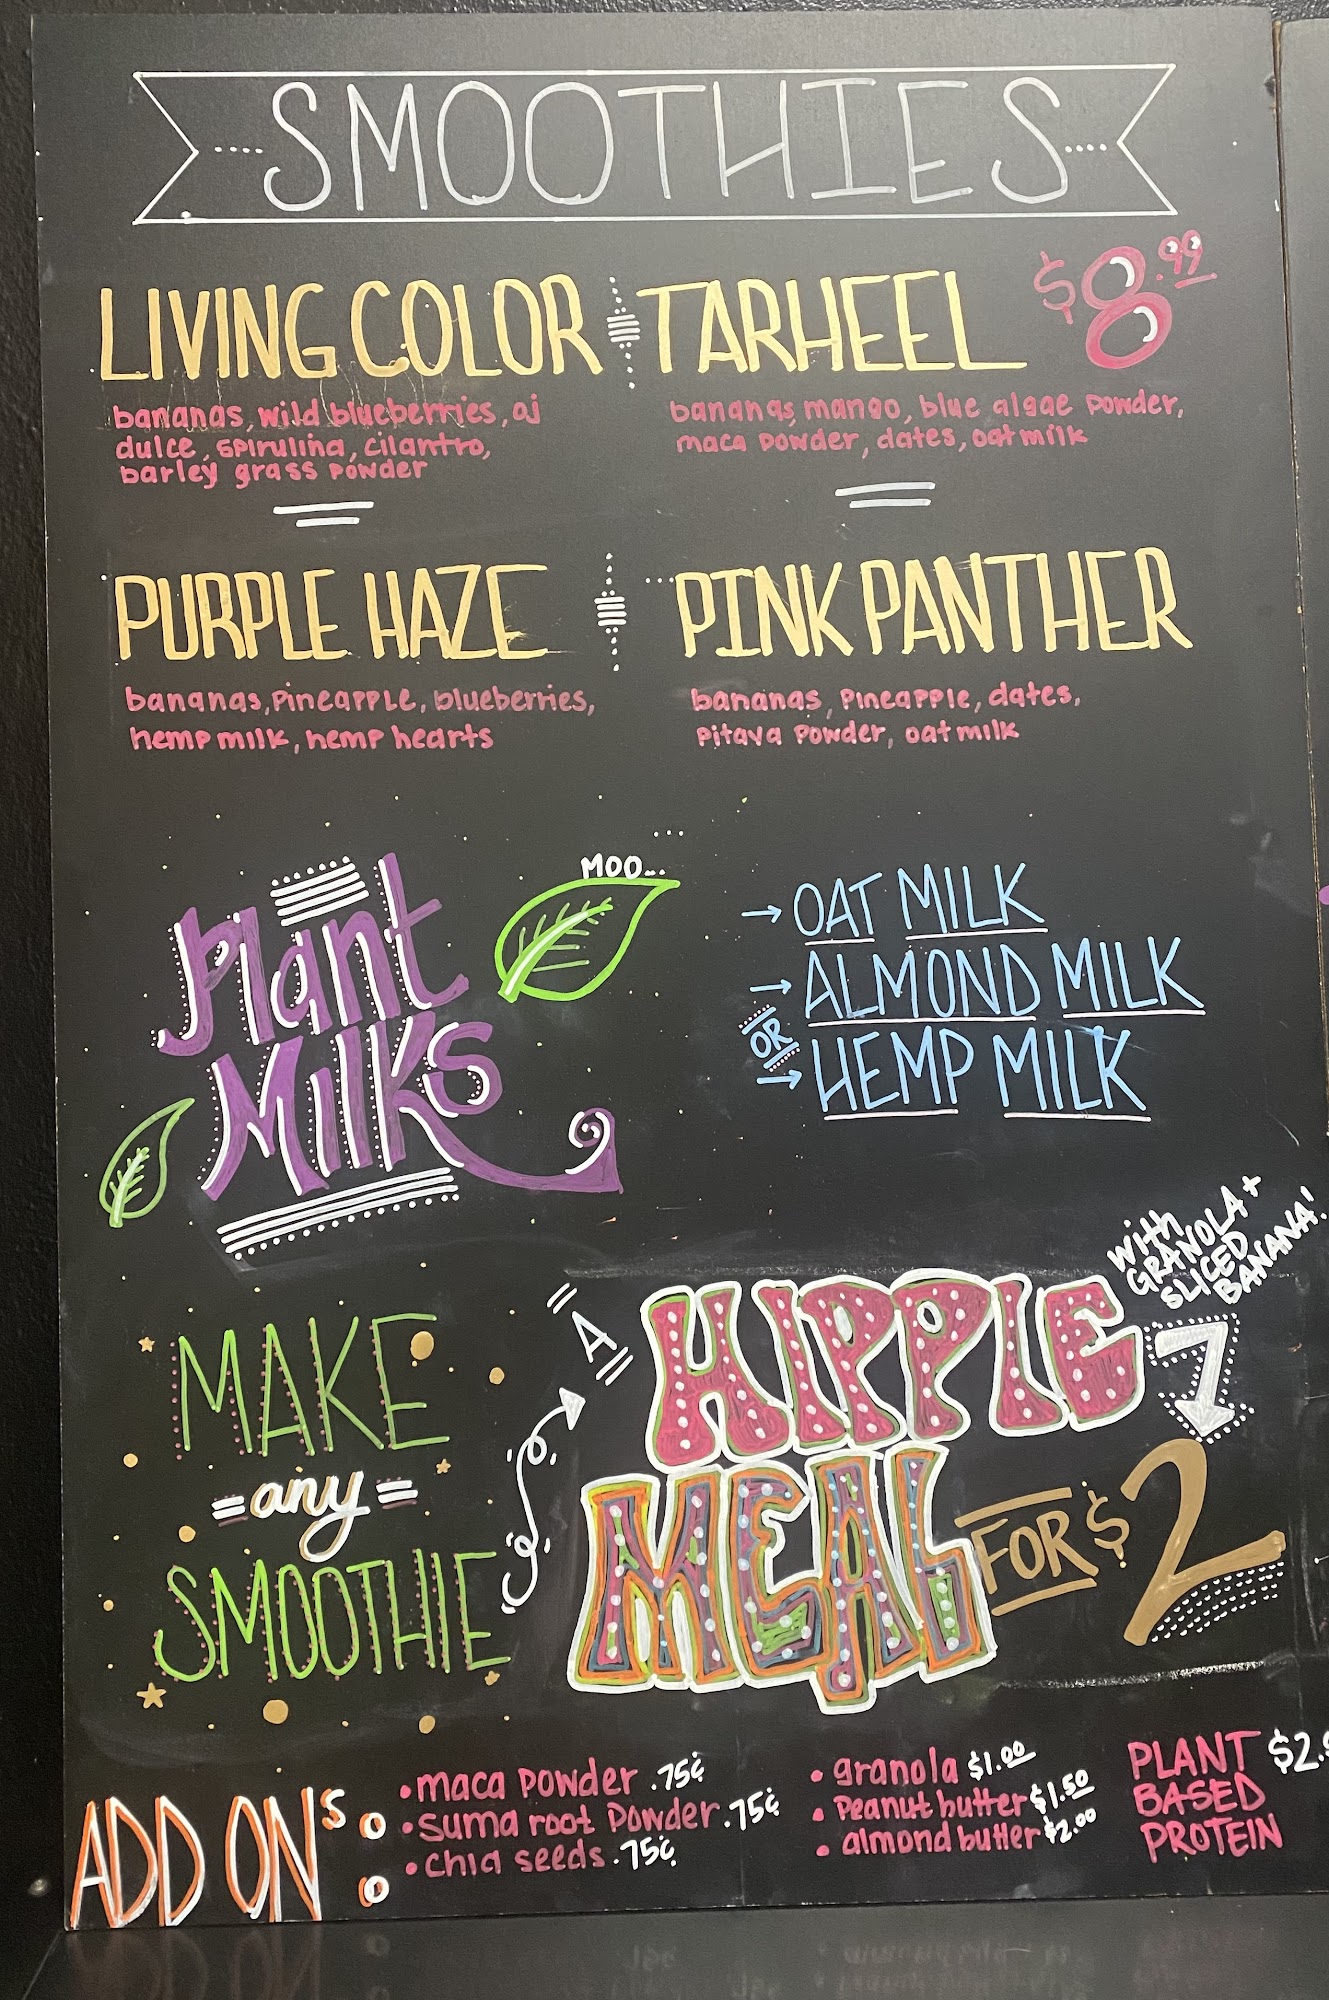 SMOOTHIES
LIVING COLOR
bananas, wild blueberries, oj
dulce, spirulina, cilantro,
barley grass powder
TARHEEL $8.99
bananas, mango, blue algae powder,
maca powder, dates, oat milk
PURPLE HAZE
bananas, pineapple, blueberries,
hemp milk, hemp hearts
PINK PANTHER
bananas, pineapple, dates,
pitaya powder, oat milk
Plant
Milks
MOO...
→ OAT MILK
→ ALMOND MILK
OR
→ HEMP MILK
MAKE
=any=
SMOOTHIE
A
HIPPIE
MEAL
FOR $2
with
GRANOLA +
SLICED
BANANA!
ADD ONs:
• maca powder .75¢
• suma root powder .75¢
• chia seeds .75¢
• granola $1.00
• peanut butter $1.50
• almond butter $2.00
PLANT
BASED
PROTEIN